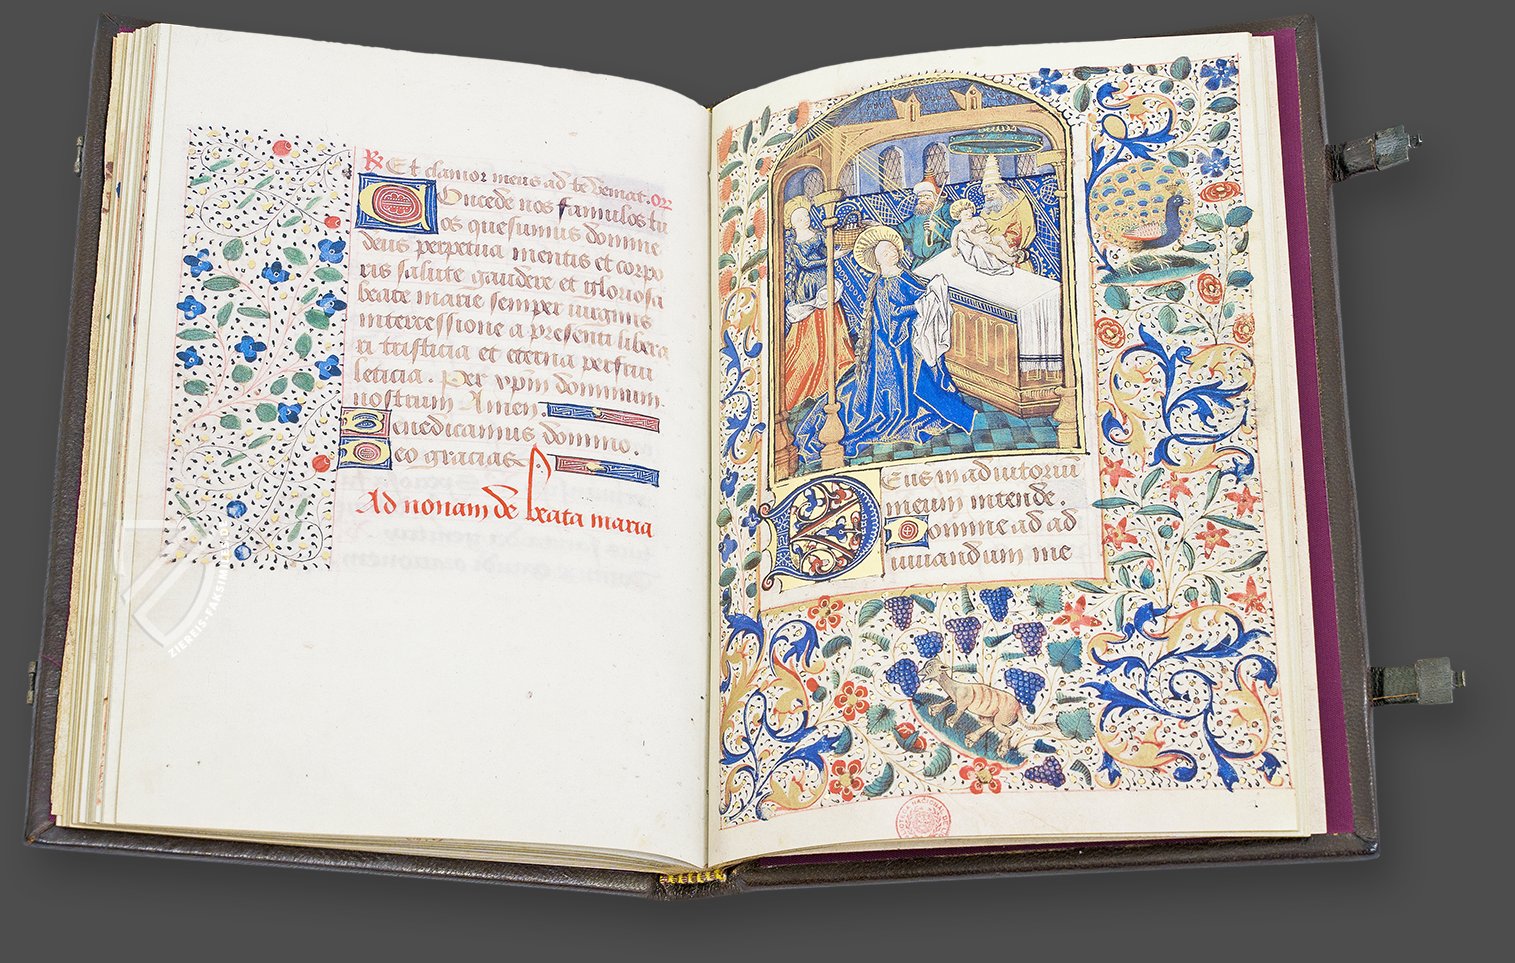 R Et clamor meus ad te veniat. Or
Concede nos famulos tu
os quesumus domine
deus perpetua mentis et corpo
ris salute gaudere et gloriosa
beate marie semper virginis
intercessione a presenti libera
ri tristicia et eterna perfrui
leticia. Per xpm dominum
nostrum Amen.
Benedicamus domino.
Deo gracias
Ad nonam de beata maria
Deus in adiutoriu
meum intende
Domine ad ad
iuuandum me
ZIEREIS-FAKSIMILES